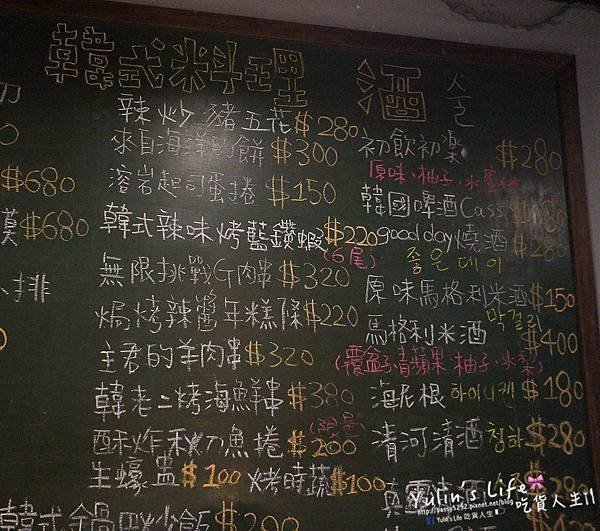 韓式料理
辣炒豬五花$280
來自海洋 餅$300
溶岩起司蛋捲$150
韓式辣味烤藍鑽蝦$220
(6尾)
無限挑戰G肉串$320
焗烤辣醬年糕條$220
主君的羊肉串$320
韓老二烤海鮮串$380
酥炸秋刀魚捲$200
生蠔 $100 烤時蔬$100
韓式 炒飯$200
刀
$680
$680
排
酒 술
初飲初樂 $280
原味、柚子、水蜜桃
韓國啤酒Cass
good day燒酒$280
좋은데이
原味馬格利米酒$150
막걸리
馬格利米酒 $400
(覆盆子青蘋果、柚子、水梨)
海尼根 하이니켄 $180
清河清酒 청하 $280
真
Yulin's Life
吃貨人生!!
Yulin's Life 吃貨人生